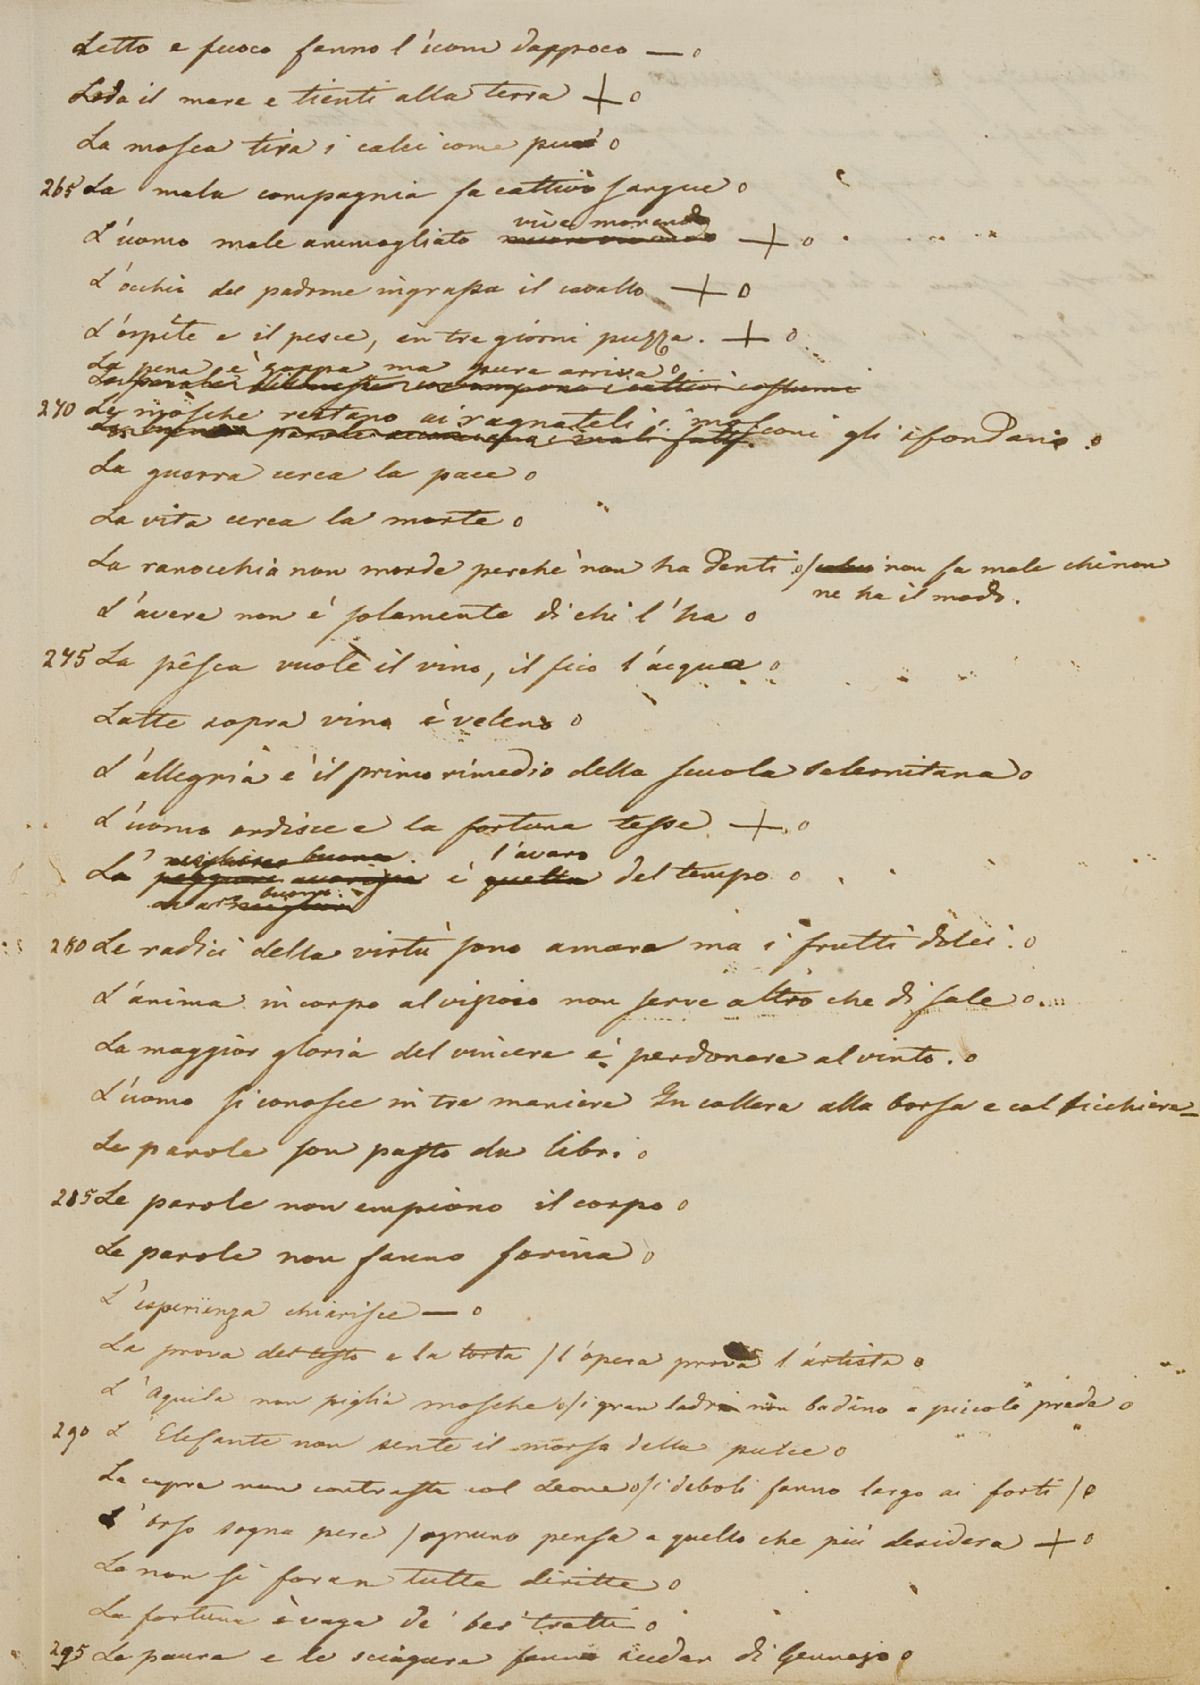 Letto e fuoco fanno l'uom dappoco — o
Loda il mare e tienti alla terra + o
La mosca tira i calci come può o
265 La mala compagnia fa cattivo sangue o
vive morendo
L'uomo male ammogliato + o
L'occhio del padrone ingrassa il cavallo + o
L'ospite e il pesce, in tre giorni puzza. + o
La pena è zoppa ma pure arriva o
270 Le mosche restano ai ragnateli i mosconi gli sfondano. o
La guerra cerca la pace o
La vita cerca la morte o
La ranocchia non morde perchè non ha denti o / non fa male chi non
ne ha il modo.
L'avere non è solamente di chi l'ha o
275 La pêsca vuole il vino, il fico l'acqua o
Latte sopra vino è veleno o
L'allegria è il primo rimedio della scuola salernitana o
L'uomo ordisce e la fortuna tesse + o
migliore buona l'avaro
La peggiore avarizia è quella del tempo o
buona
280 Le radici della virtù sono amare ma i frutti dolci. o
L'anima in corpo al vizioso non serve altro che di sale o
La maggior gloria del vincere è perdonare al vinto. o
L'uomo si conosce in tre maniere In collera alla borsa e col bicchiere
Le parole son pasto da libri o
285 Le parole non empiono il corpo o
Le parole non fanno farina o
L'esperienza chiarisce — o
La prova del testo e la torta / l'opera prova l'artista o
L'Aquila non piglia mosche o / i gran ladri non badano a piccole prede o
290 L'Elefante non sente il morso della pulce o
La capra non contrasta col Leone o / i deboli fanno largo ai forti / o
L'orso sogna pere / ognuno pensa a quello che più desidera + o
Le non si foran tutte diritte o
La fortuna è vaga de' bei tratti o
295 La paura e le sciagure fanno sudar di Gennajo o